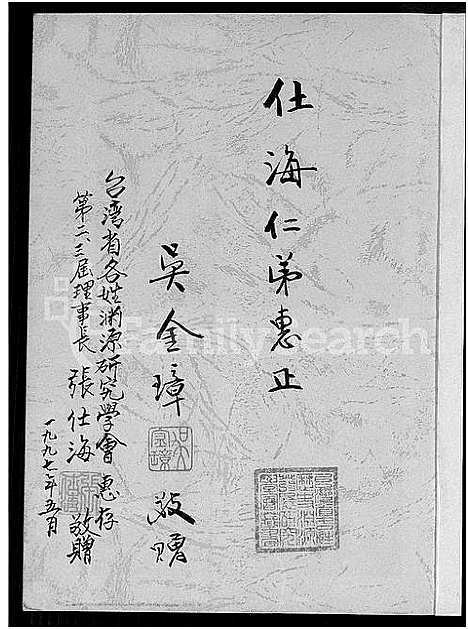 仕海仁弟惠正
吳金璋
敬贈
台湾省各姓渊源研究學會 惠存
第二、三屆理事長 張仕海 敬贈
一九九七年五月
FamilySearch